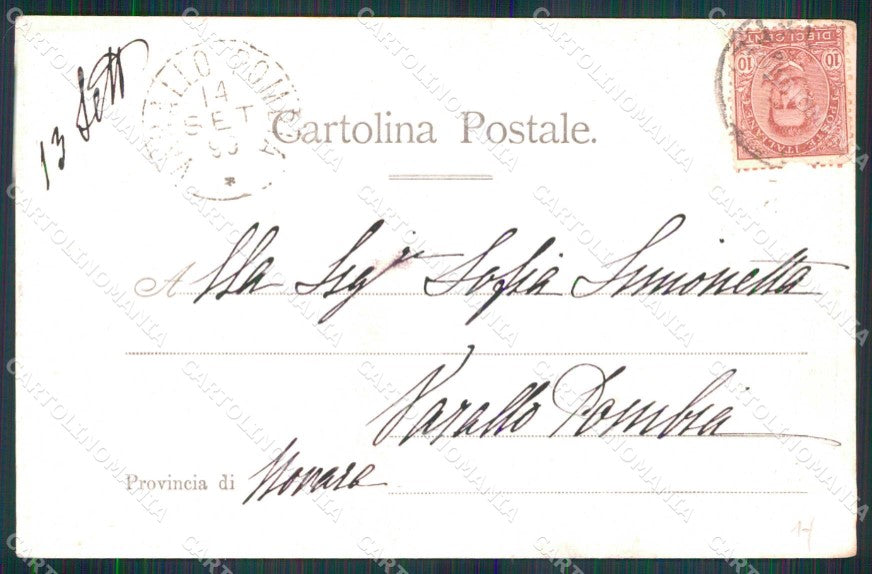 13 Sett
VARALLO POMBIA
14
SET
DIECI CENT
10 10
POSTE ITALIANE
Cartolina Postale.
Alla Sigra Sofia Simonetta
Varallo Pombia
Provincia di Novara
CARTOLINOMANIA